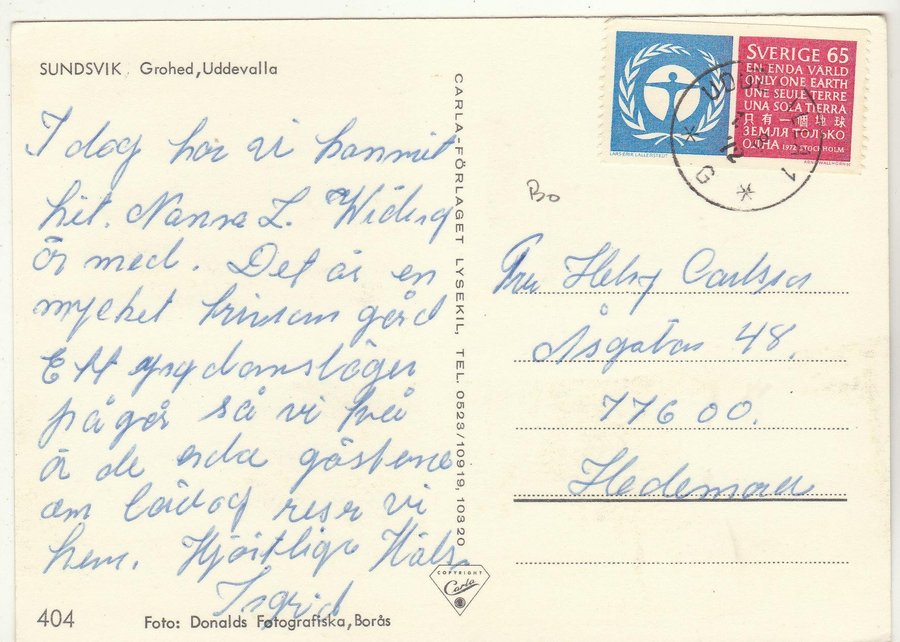 SUNDSVIK Grohed, Uddevalla
I dag har vi kommit
hit. Nanna L. Widing
är med. Det är en
mycket trivsam gård
Ett ungdomsläger
pågår så vi två
är de enda gästerna
om lördag reser vi
hem. Hjärtliga Häls.
Ingrid
404
Foto: Donalds Fotografiska, Borås
CARLA-FÖRLAGET LYSEKIL, TEL. 0523/10919, 10320
COPYRIGHT
Carla
SVERIGE 65
EN ENDA VÄRLD
ONLY ONE EARTH
UNE SEULE TERRE
UNA SOLA TIERRA
只有一個地球
ЗЕМЛЯ ТОЛЬКО
ОДНА 1972 STOCKHOLM
LARS-ERIK LALLERSTEDT
ARNE WALLHORN SC
Bo
Fru Helny Carlsson
Åsgatan 48.
776 00.
Hedemora